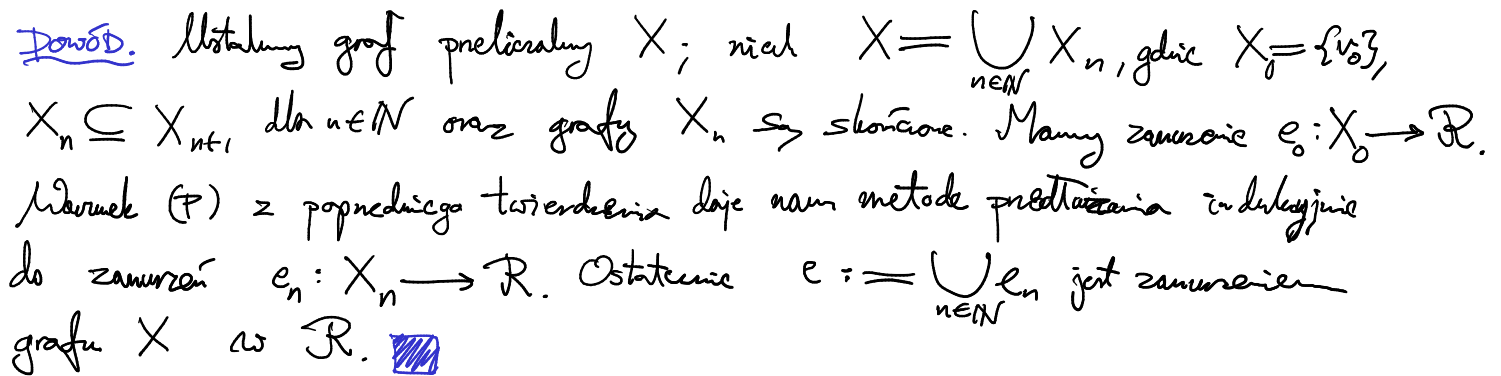 DOWÓD. Ustalmy graf przeliczalny X; niech X = ⋃_{n∈ℕ} X_n, gdzie X_0 = {v_0},
X_n ⊆ X_{n+1} dla n∈ℕ oraz grafy X_n są skończone. Mamy zanurzenie e_0 : X_0 ⟶ R.
Warunek (P) z poprzedniego twierdzenia daje nam metodę przedłużania indukcyjnie
do zanurzeń e_n : X_n ⟶ R. Ostatecznie e := ⋃_{n∈ℕ} e_n jest zanurzeniem
grafu X w R.